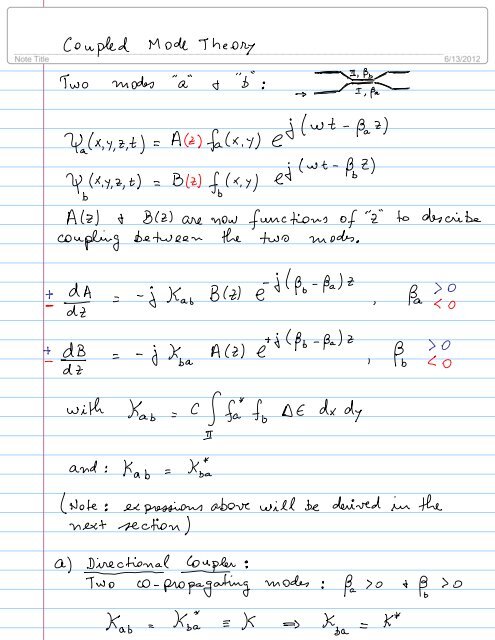 Coupled Mode Theory
Note Title
6/13/2012
Two modes "a" & "b" :
II, βb
I, βa
Ψa(x,y,z,t) = A(z) fa(x,y) e^j(ωt - βa z)
Ψb(x,y,z,t) = B(z) fb(x,y) e^j(ωt - βb z)
A(z) & B(z) are now functions of "z" to describe
coupling between the two modes.
± dA/dz = -j Kab B(z) e^-j(βb - βa)z , βa >0 <0
± dB/dz = -j Kba A(z) e^+j(βb - βa)z , βb >0 <0
with Kab = C ∫II fa* fb Δϵ dx dy
and : Kab = Kba*
(Note : expressions above will be derived in the
next section)
a) Directional Coupler :
Two co-propagating modes : βa >0 & βb >0
Kab = Kba* ≡ K ⇒ Kba = K*